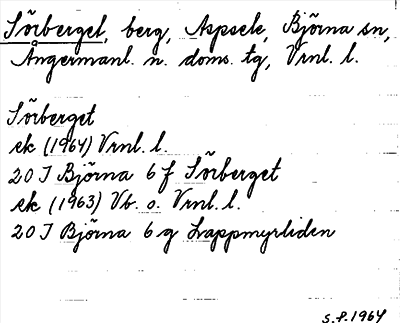 Sörberget, berg, Aspsele, Björna sn,
Ångermanl. n. doms. tg, Vrnl. l.
Sörberget
ek (1964) Vrnl. l.
20 J Björna 6 f Sörberget
ek (1963) Vb. o. Vrnl. l.
20 J Björna 6 g Lappmyrliden
S.P. 1964